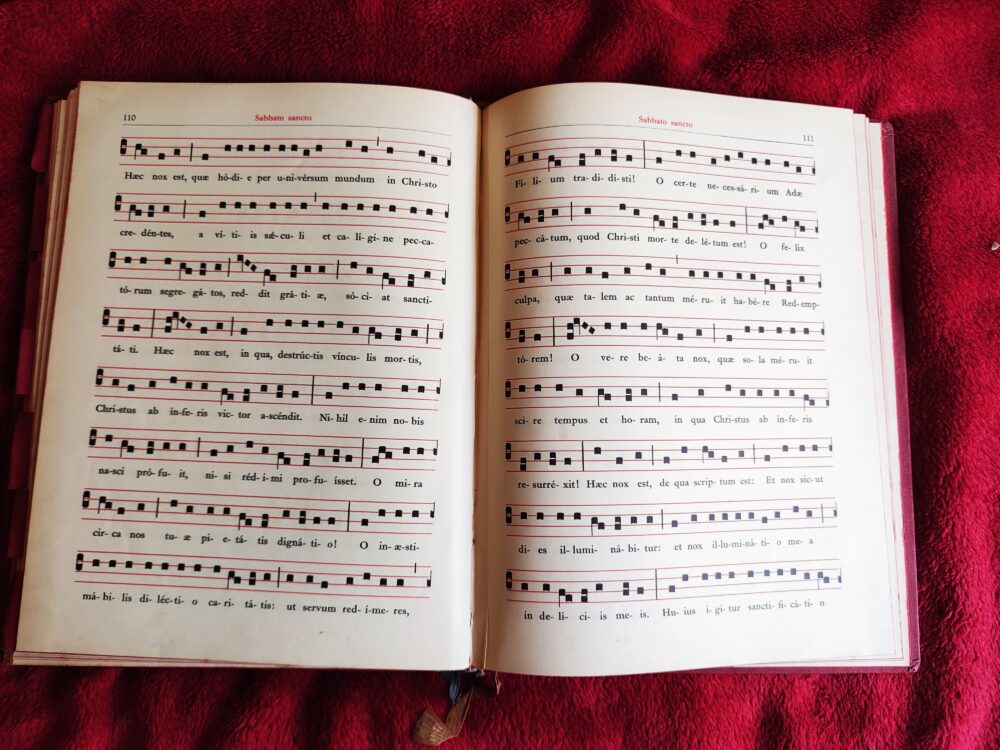 110
Sabbato sancto
Hæc nox est, quæ hó-di-e per u-ni-vérsum mundum in Chri-sto
cre-dén-tes, a ví-ti-is sǽ-cu-li et ca-lí-gi-ne pec-ca-
tó-rum segre-gá-tos, red-dit grá-ti-æ, só-ci-at sancti-
tá-ti. Hæc nox est, in qua, destrúc-tis víncu-lis mor-tis,
Chri-stus ab ínfe-ris vic-tor a-scéndit. Ni-hil e-nim no-bis
na-sci pró-fu-it, ni-si réd-i-mi pro-fu-ísset. O mi-ra
cir-ca nos tu-æ pi-e-tá-tis digná-ti-o! O in-æ-sti-
má-bi-lis di-léc-ti-o ca-ri-tá-tis: ut servum red-í-me-res,
Sabbato sancto
111
Fí-li-um tra-di-dí-sti! O cer-te ne-ces-sá-ri-um Adæ
pec-cá-tum, quod Chri-sti mor-te de-lé-tum est! O fe-lix
culpa, quæ ta-lem ac tantum mé-ru-it ha-bé-re Red-emp-
tó-rem! O ve-re be-á-ta nox, quæ so-la mé-ru-it
sci-re tempus et ho-ram, in qua Chri-stus ab ínfe-ris
re-surré-xit! Hæc nox est, de qua scrip-tum est: Et nox sic-ut
di-es il-lumi-ná-bi-tur: et nox il-lu-mi-ná-ti-o me-a
in de-lí-ci-is me-is. Hu-ius í-gi-tur sancti-fi-cá-ti-o